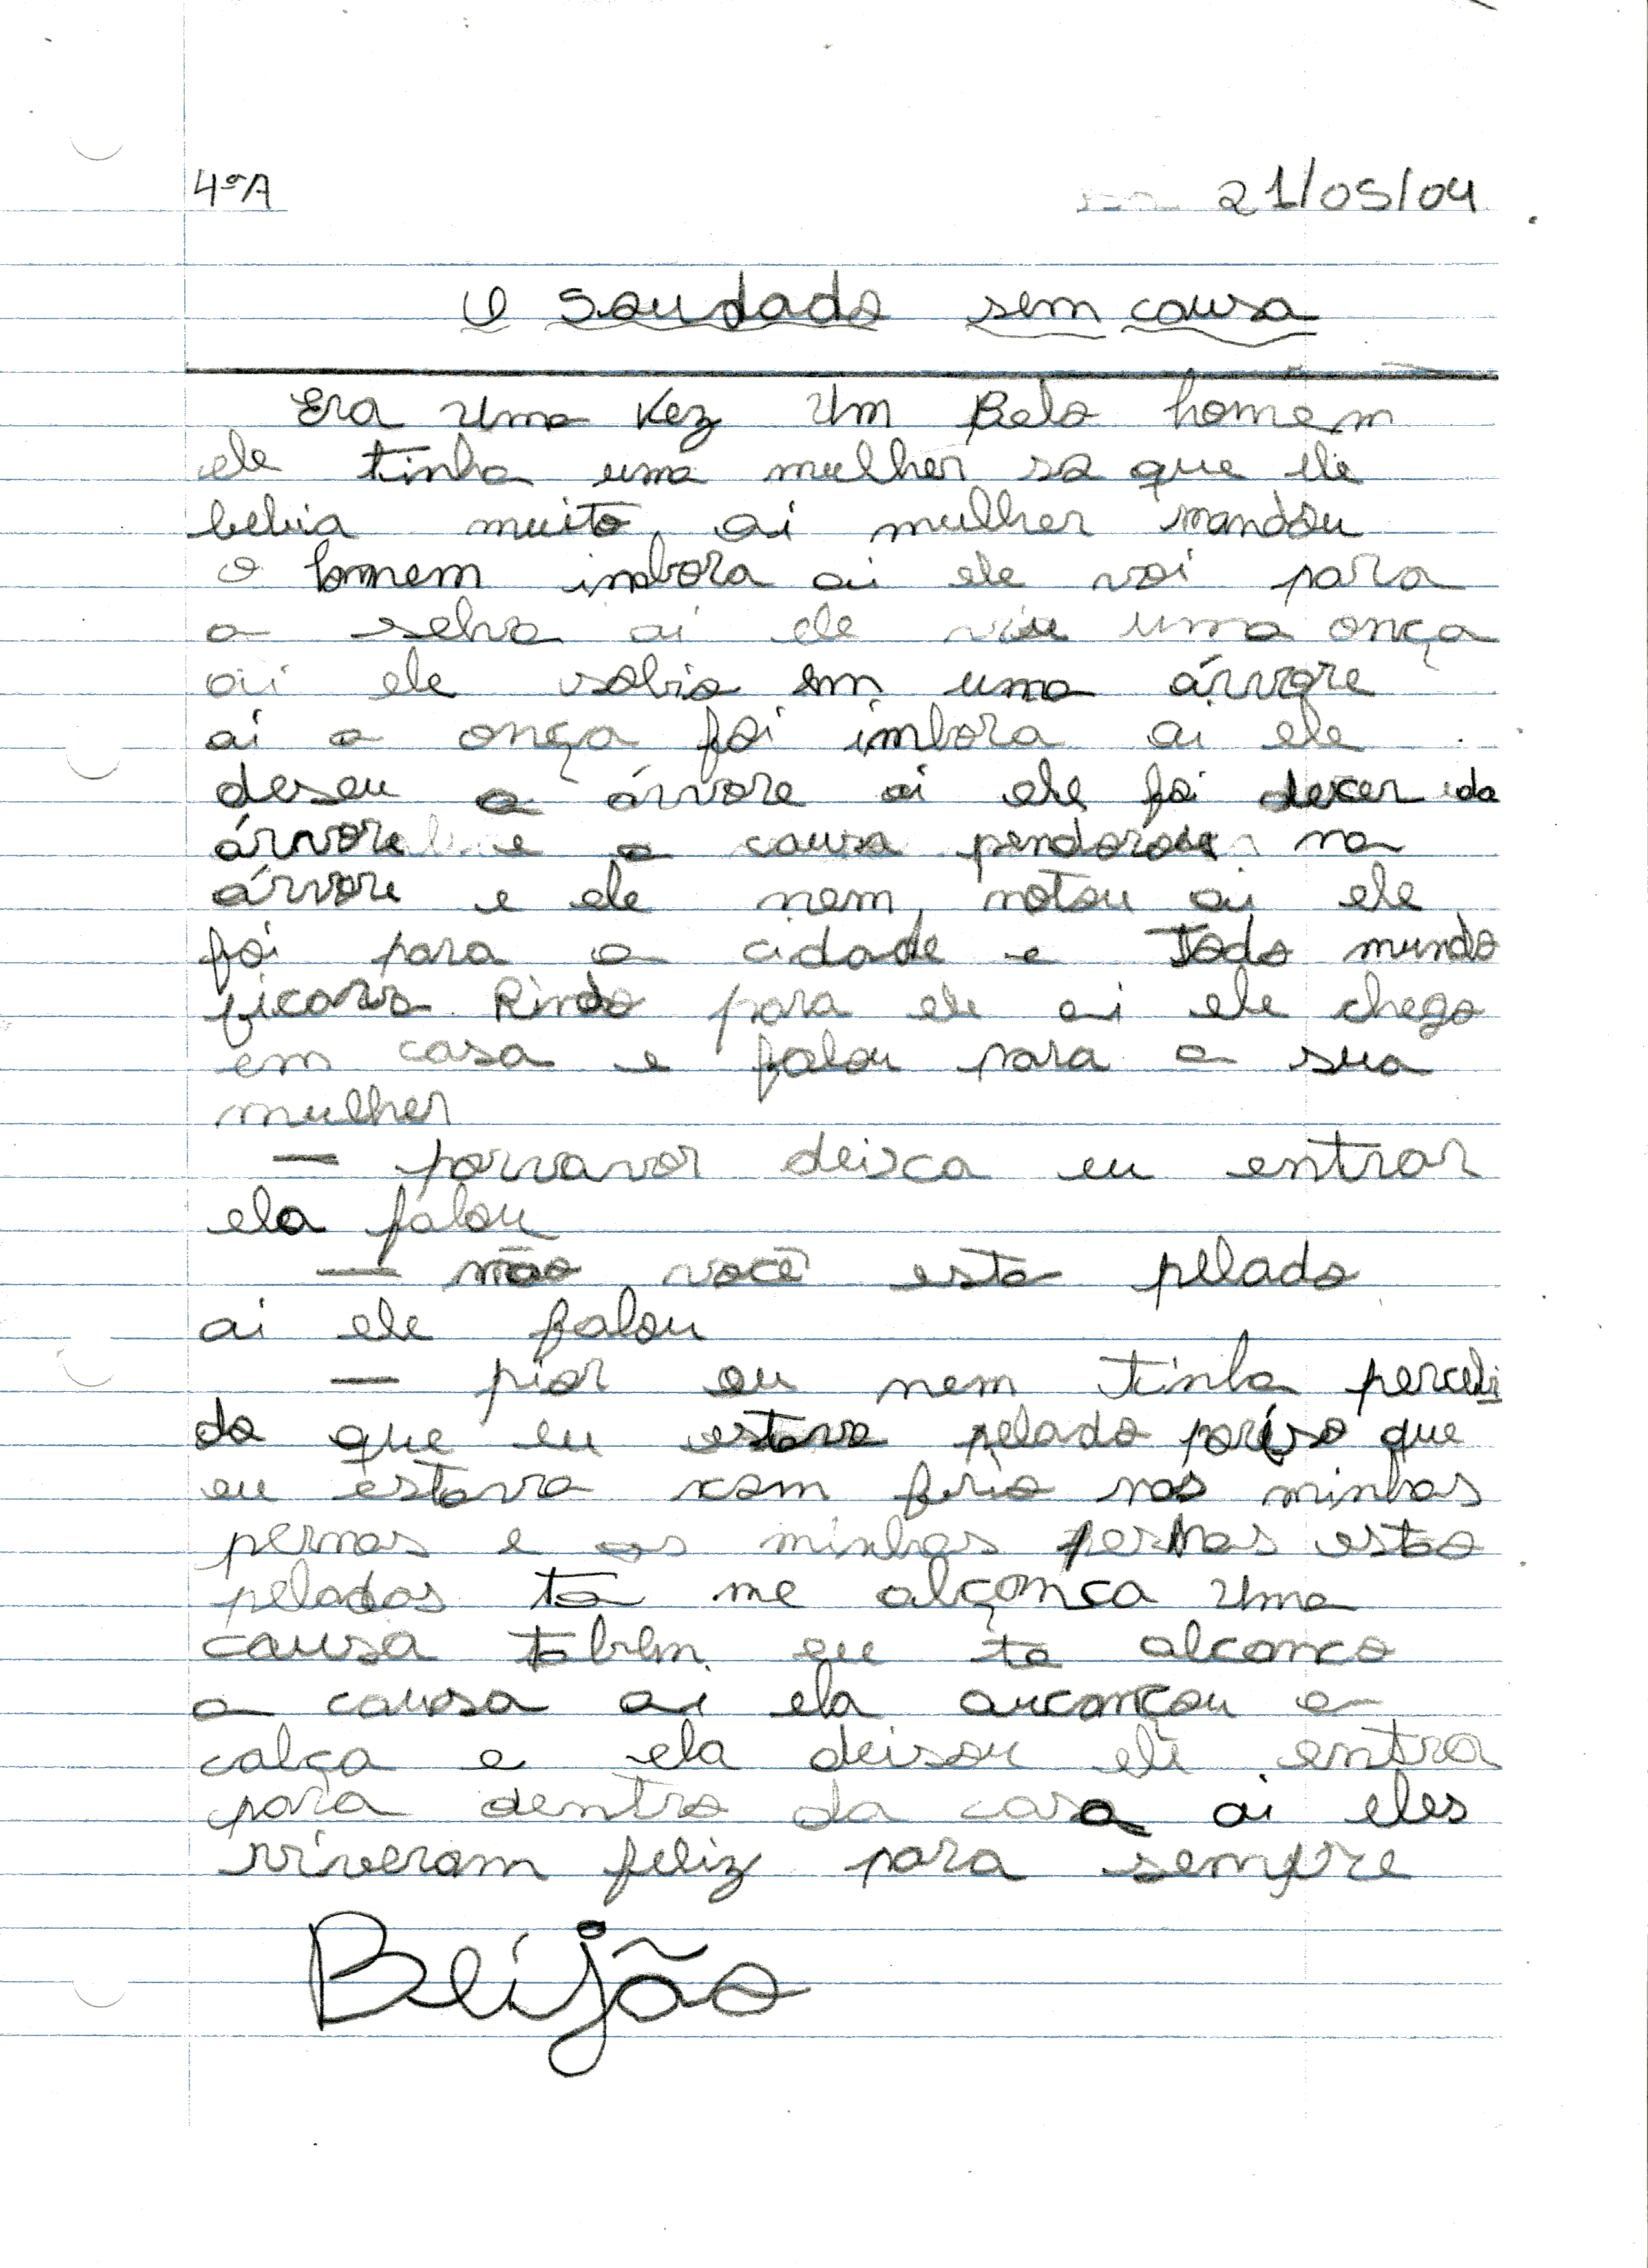 4ªA 21/05/04
O Saudado sem causa
Era uma vez um Belo homem
ele tinha uma mulher so que ele
bebia muito ai mulher mandou
o homem imbora ai ele voi para
a selva ai ele viu uma onça
ai ele sobio em uma árvore
ai a onça foi imbora ai ele
deseu a árvore ai ele foi decer da
árvore e a causa pendorose na
árvore e ele nem notou ai ele
foi para a cidade e Todo mundo
ficaro Rindo para ele ai ele chego
em casa e falou para a sua
mulher
— porvavor deixca eu entrar
ela falou
— não você esta pelado
ai ele falou
— pior eu nem Tinha percebi
do que eu estava pelado poríso que
eu estava com firio nas minhas
pernas e as minhas pernas esta
peladas ta me alçonca uma
causa tabem eu te alconco
a causa ai ela aucançou a
calça e ela deisou ele entra
para dentro da casa ai eles
viveram feliz para sempre
Beijão